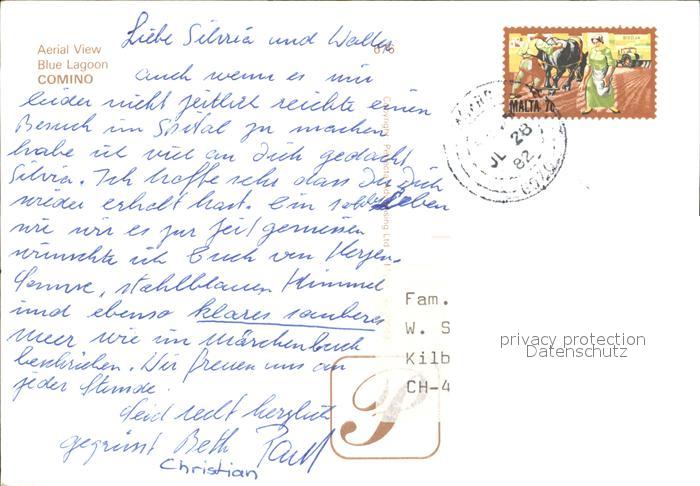 Aerial View
Blue Lagoon
COMINO
676
Liebe Silvia und Walter
auch wenn es mir
leider nicht zeitlich reichte einen
Besuch im Spital zu machen
habe ich viel an Dich gedacht
Silvia. Ich hoffe sehr dass Du Dich
wieder erholt hast. Ein solches Leben
wie wir es zur Zeit geniessen
wünschte ich Euch von Herzen.
Sonne, stahlblauen Himmel
und ebenso klares sauberes
Meer wie im Märchenbuch
beschrieben. Wir freuen uns an
jeder Stunde.
Seid recht herzlich
gegrüsst Beth Paul
Christian
MALTA 7c
JL 28
82
Fam.
W. S
Kilb
CH-4
privacy protection
Datenschutz